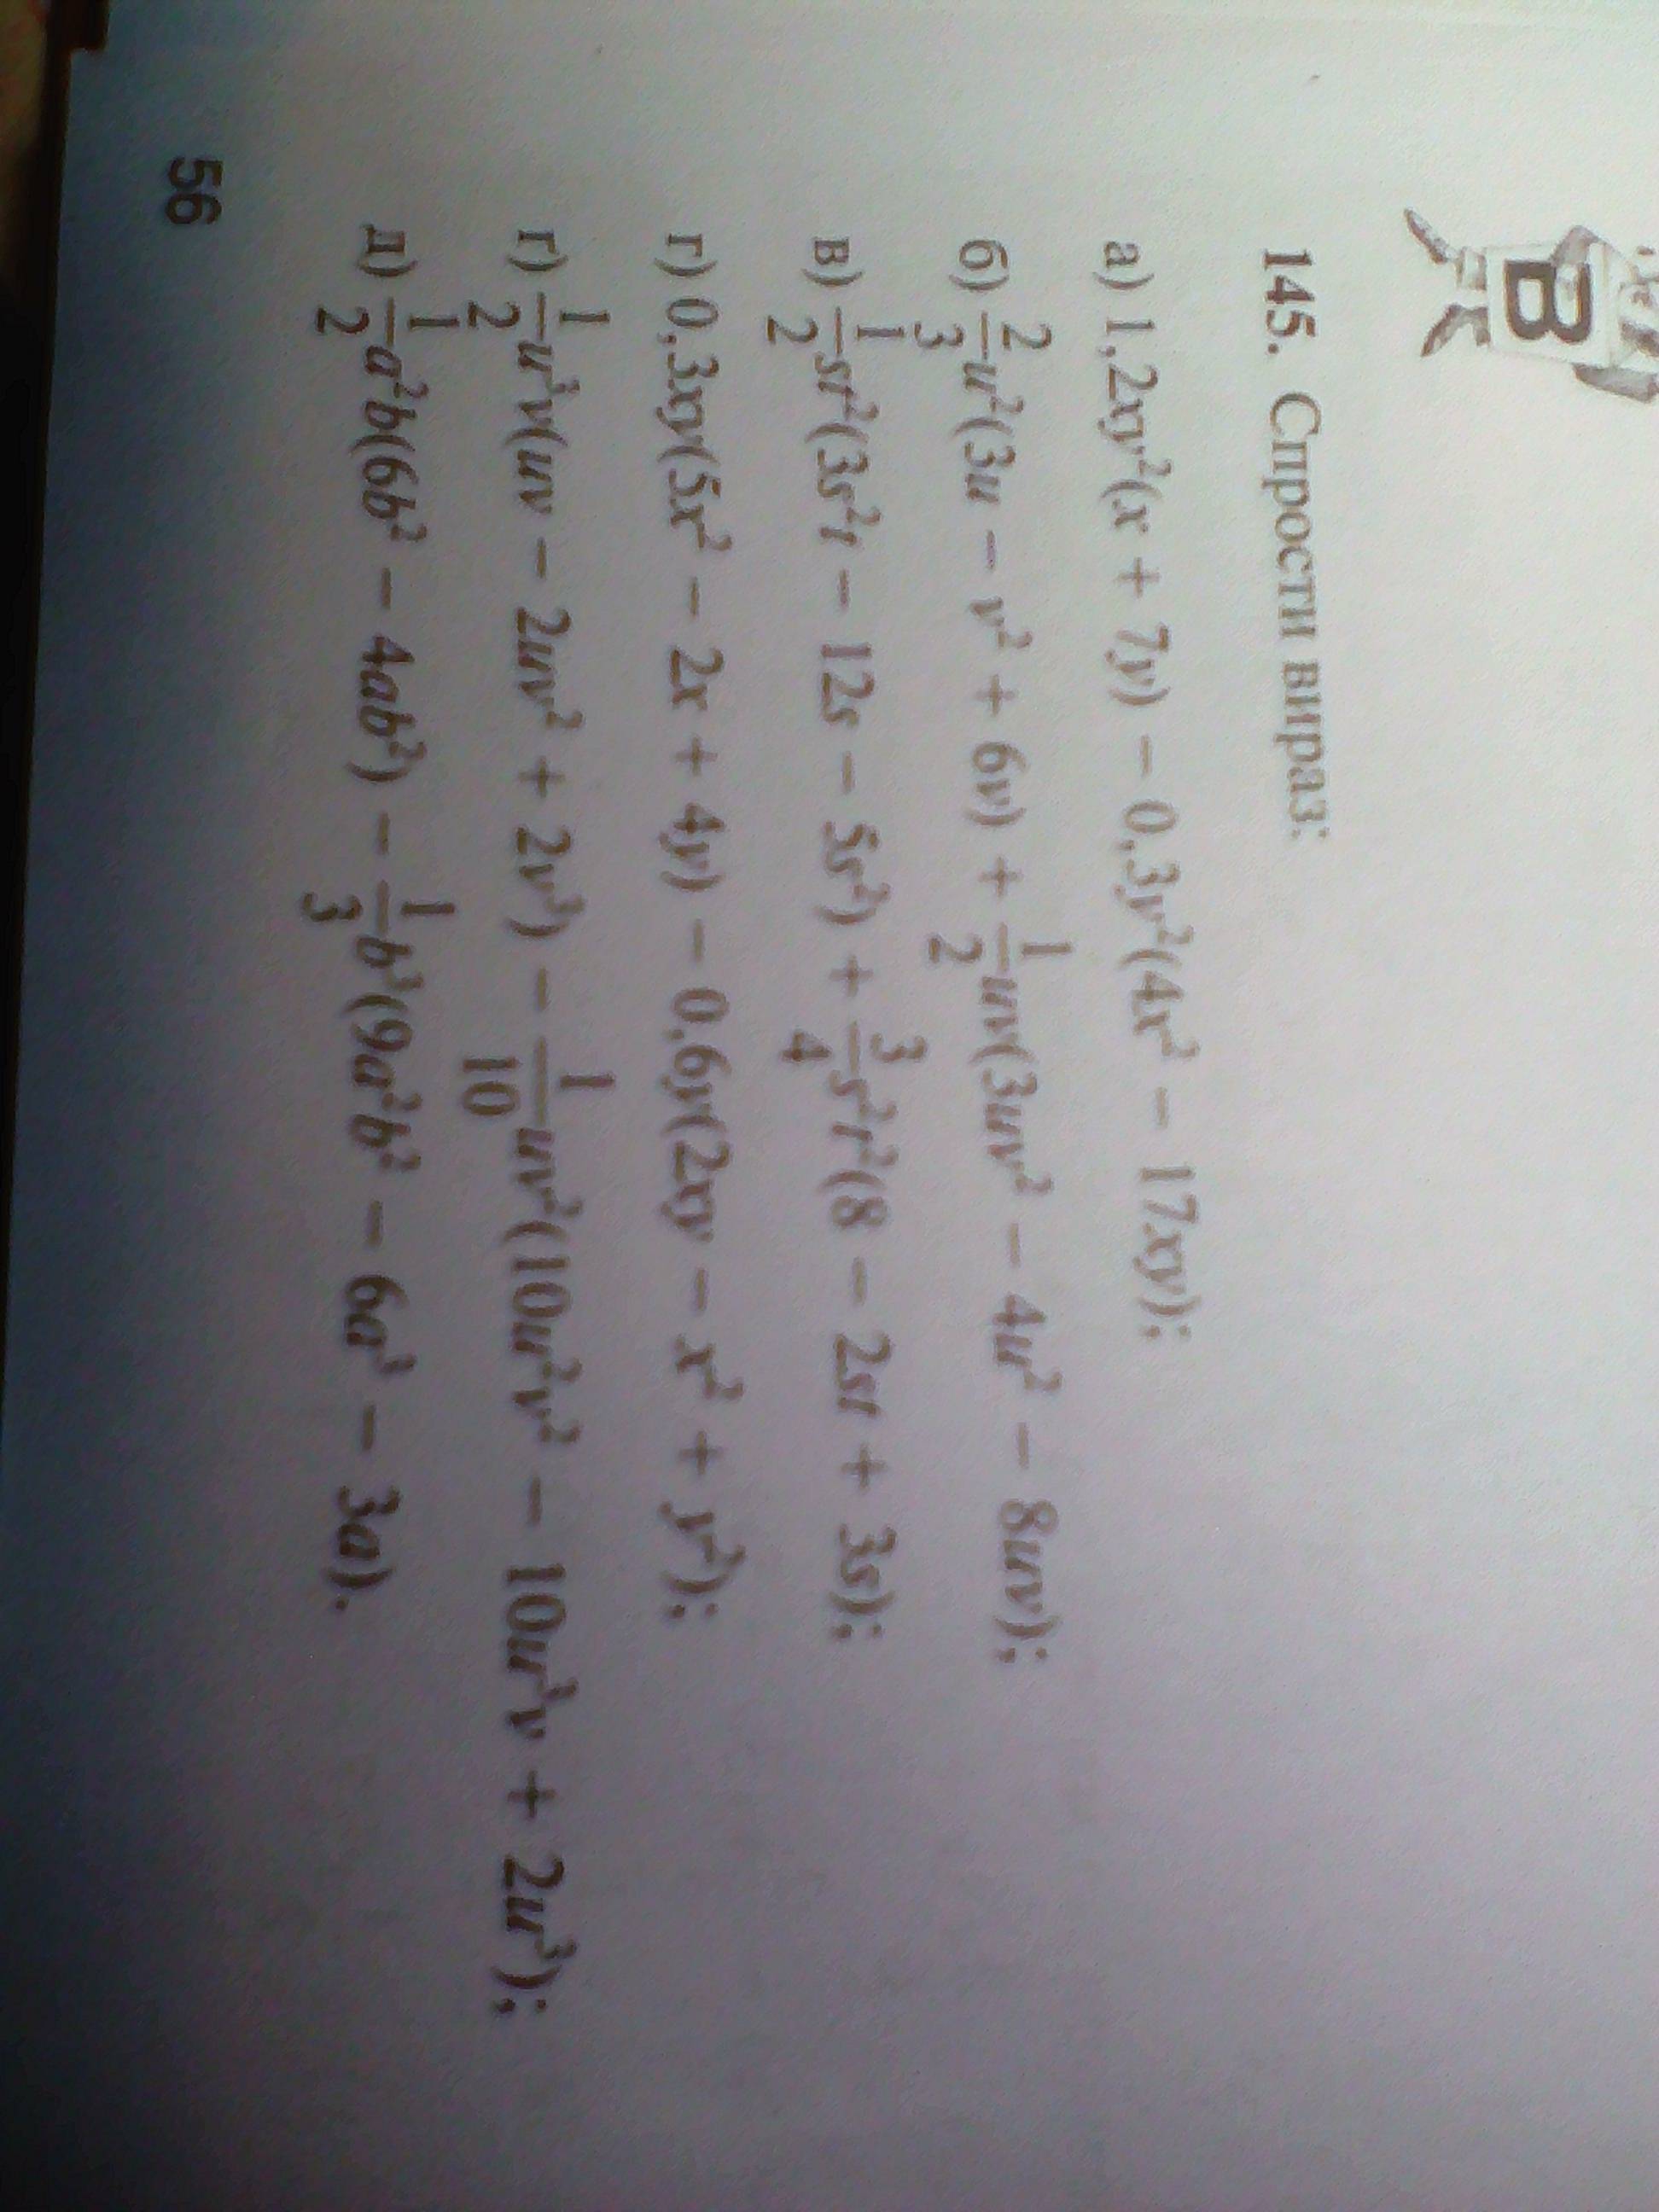 В
145. Спрости вираз:
а) 1,2xy²(x + 7y) − 0,3y²(4x² − 17xy);
б) 2/3 u²(3u − v² + 6v) + 1/2 uv(3uv² − 4u² − 8uv);
в) 1/2 st²(3s²t − 12s − 5s²) + 3/4 s²t²(8 − 2st + 3s);
г) 0,3xy(5x² − 2x + 4y) − 0,6y(2xy − x² + y²);
ґ) 1/2 u³v(uv − 2uv² + 2v³) − 1/10 uv²(10u²v² − 10u³v + 2u³);
д) 1/2 a²b(6b² − 4ab²) − 1/3 b³(9a²b² − 6a³ − 3a).
56